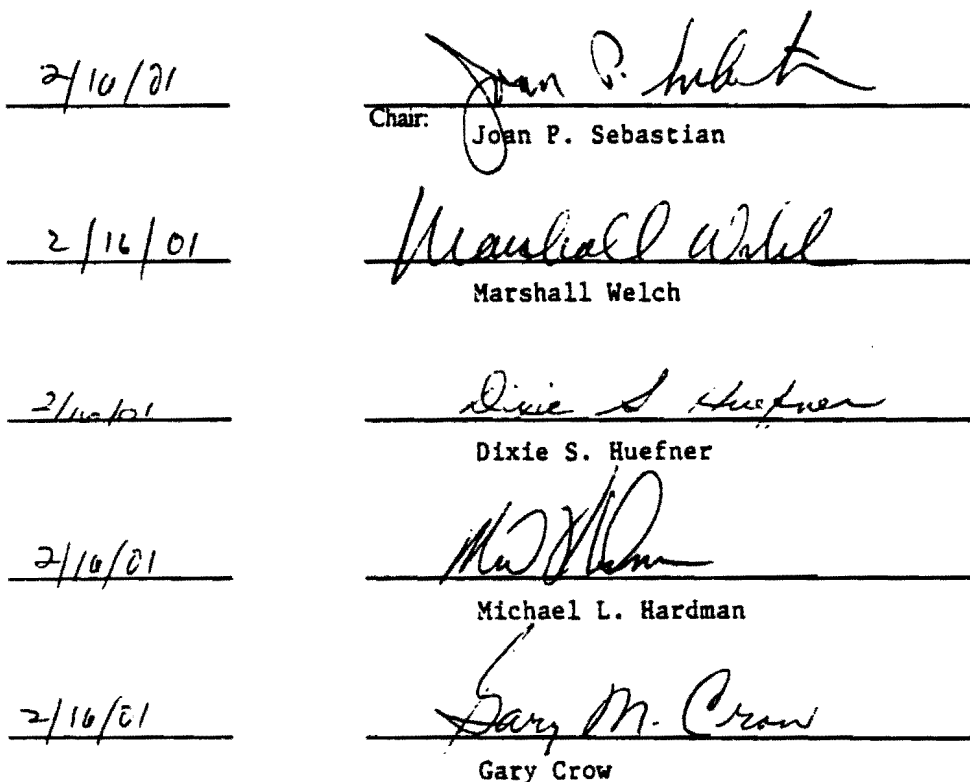 2/16/01 Joan P. Sebastian
Chair:
Joan P. Sebastian
2/16/01 Marshall Welch
Marshall Welch
2/16/01 Dixie S Huefner
Dixie S. Huefner
2/16/01
Michael L. Hardman
2/16/01 Gary M. Crow
Gary Crow